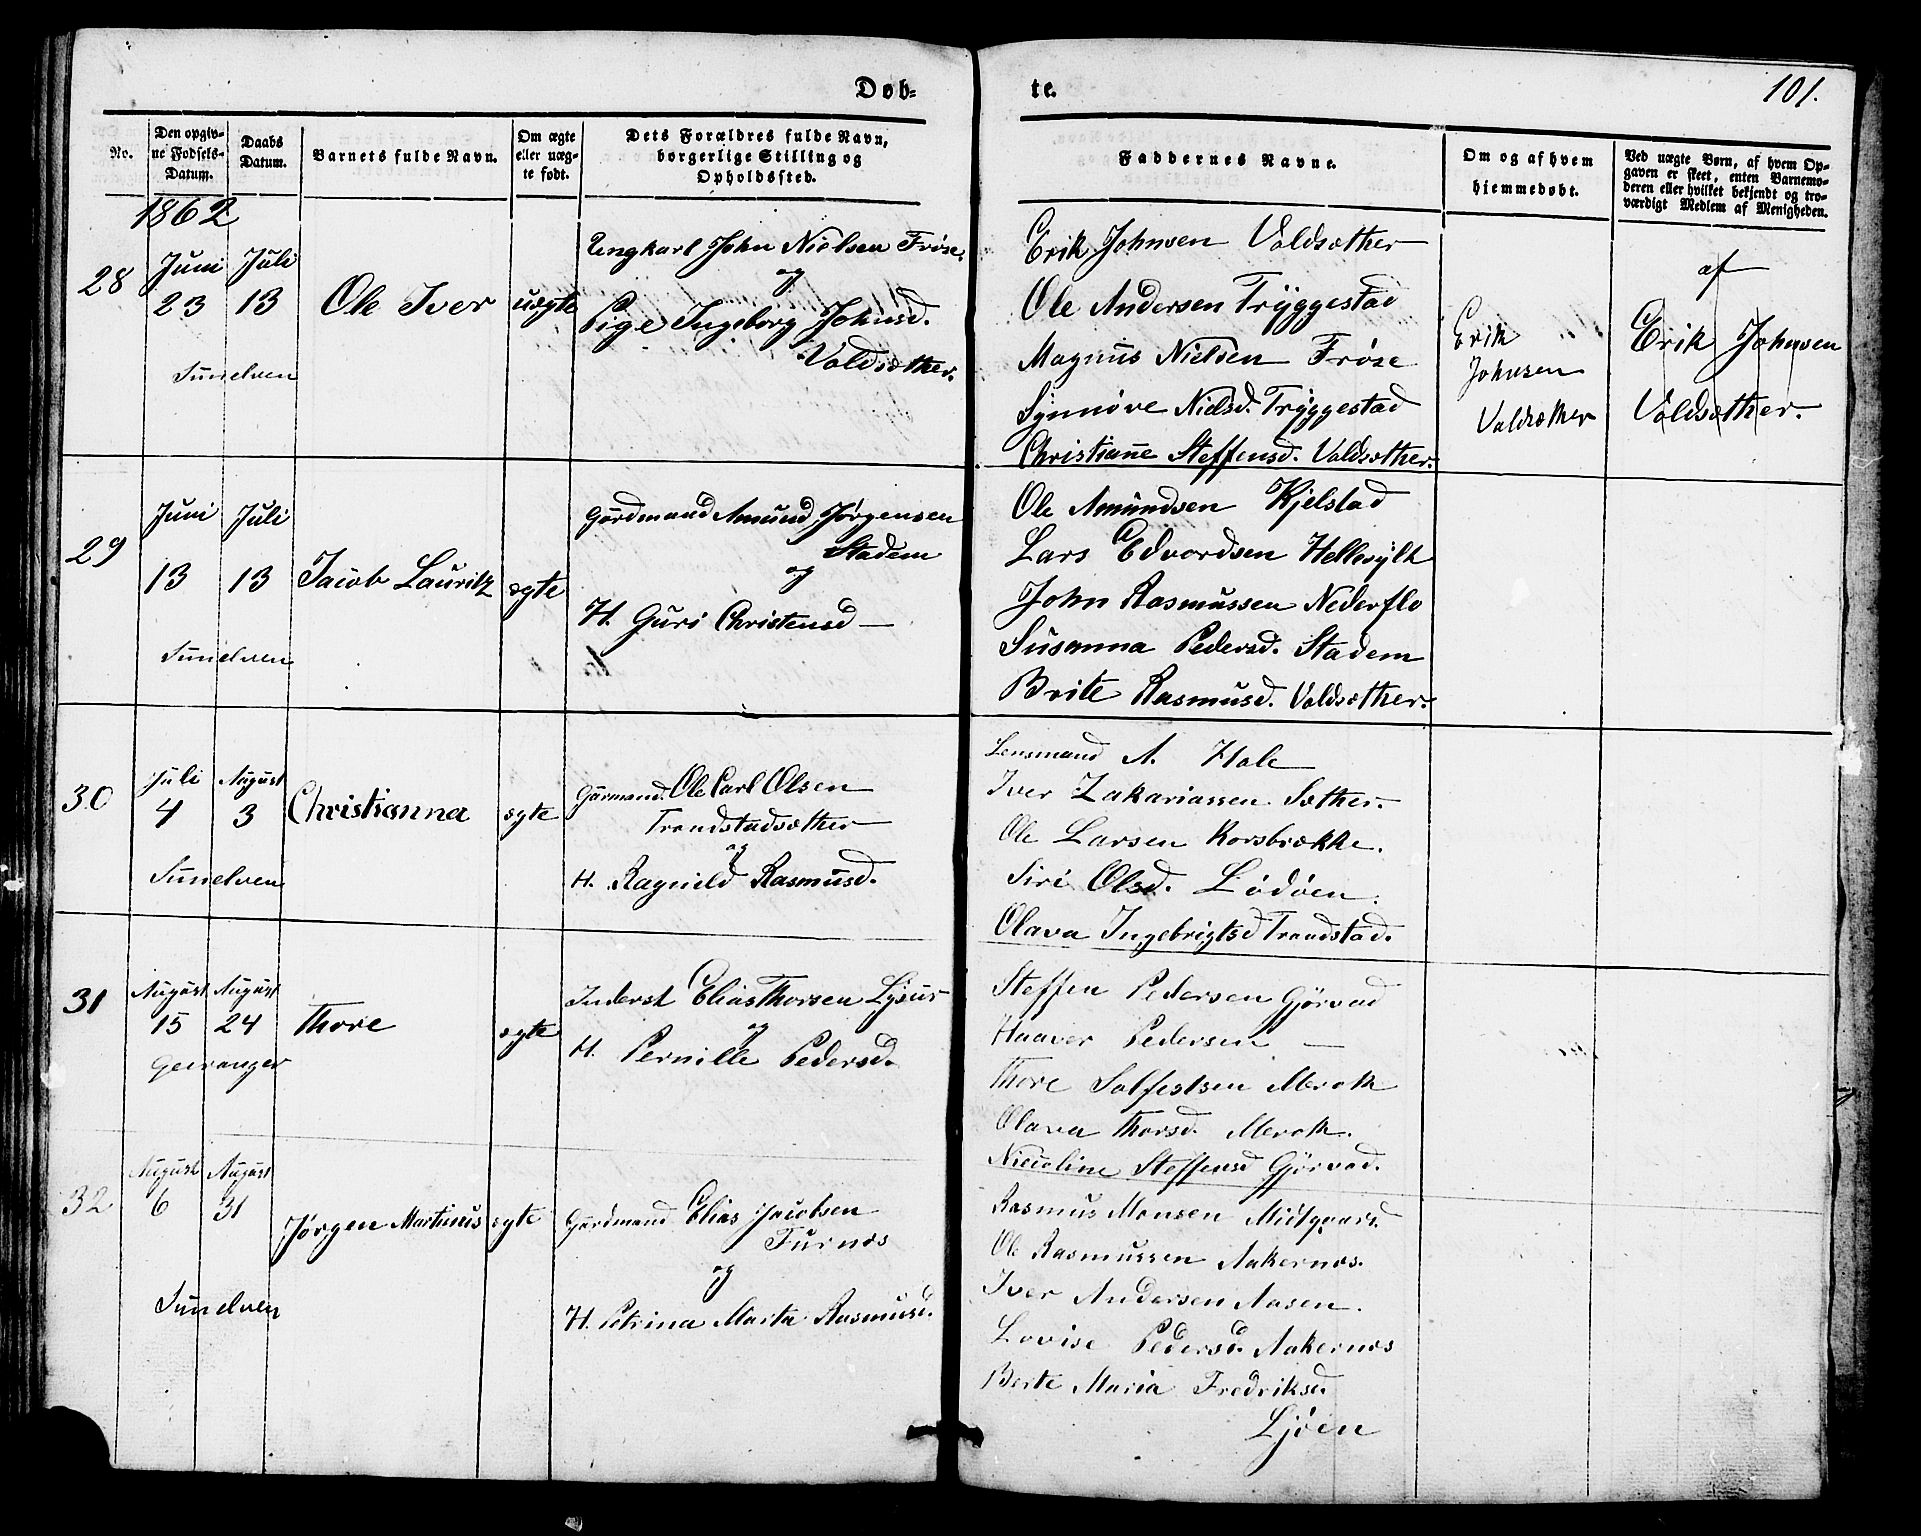 Døb-
te.
101.
No.
Den opgiv-
ne Fødsels-
Datum.
Daabs
Datum.
Barnets fulde Navn.
Om ægte
eller uæg-
te født.
Dets Forældres fulde Navn,
borgerlige Stilling og
Opholdssted.
Faddernes Navne.
Om og af hvem
hjemmedøbt.
Ved uægte Børn, af hvem Op-
gaven er skeet, enten Barnemo-
deren eller hvilket bekjendt og tro-
værdigt Medlem af Menigheden.
1862
28
Juni
23
Sunelven
Juli
13
Ole Iver
uægte
Ungkarl John Nielsen Frøse
og
Pige Ingeborg Johnsd.
Voldsæther.
Erik Johnsen Voldsæther
Ole Andersen Tryggestad
Magnus Nielsen Frøse
Synnøve Nielsd. Tryggestad
Christianne Steffensd. Voldsæther.
Erik
Johnsen
Voldsæther
af
Erik Johnsen
Voldsæther.
29
Juni
13
Sunelven
Juli
13
Jacob Lauritz
ægte
Gårdmand Amund Jørgensen
Stadem
og
H. Guri Christensd —
Ole Amundsen Kjelstad
Lars Edvardsen Hellesylt
John Rasmussen Nederflo
Susanna Pedersd. Stadem
Brite Rasmusd. Voldsæther.
30
Juli
4
Sunelven
August
3
Christianna
ægte
Gårmand. Ole Carl Olsen
Trandstadsæther
og
H. Ragnild Rasmusd.
Lensmand A. Hole
Iver Zakariassen Sæther.
Ole Larsen Korsbrække.
Siri Olsd. Lødøen.
Olava Ingebrigtsd Trandstad.
31
August
15
Geiranger
August
24
Thore
ægte
Inderst Elias Thorsen Lysur
og
H. Pernille Pedersd.
Steffen Pedersen Gjørvad
Haaver Pedersen —
Thore Solfestsen Merok
Olava Thorsd. Merok.
Nicoline Steffensd Gjørvad.
32
August
6
Sunelven
August
31
Jørgen Martinus
ægte
Gårdmand Elias Jacobsen
Furnæs
og
H. Petrina Marta Rasmusd.
Rasmus Monsen Midtgaard.
Ole Rasmussen Aakernæs.
Iver Andersen Aasen.
Lovise Pedersd. Aakernæs
Berte Maria Fredriksd.
Ljøen